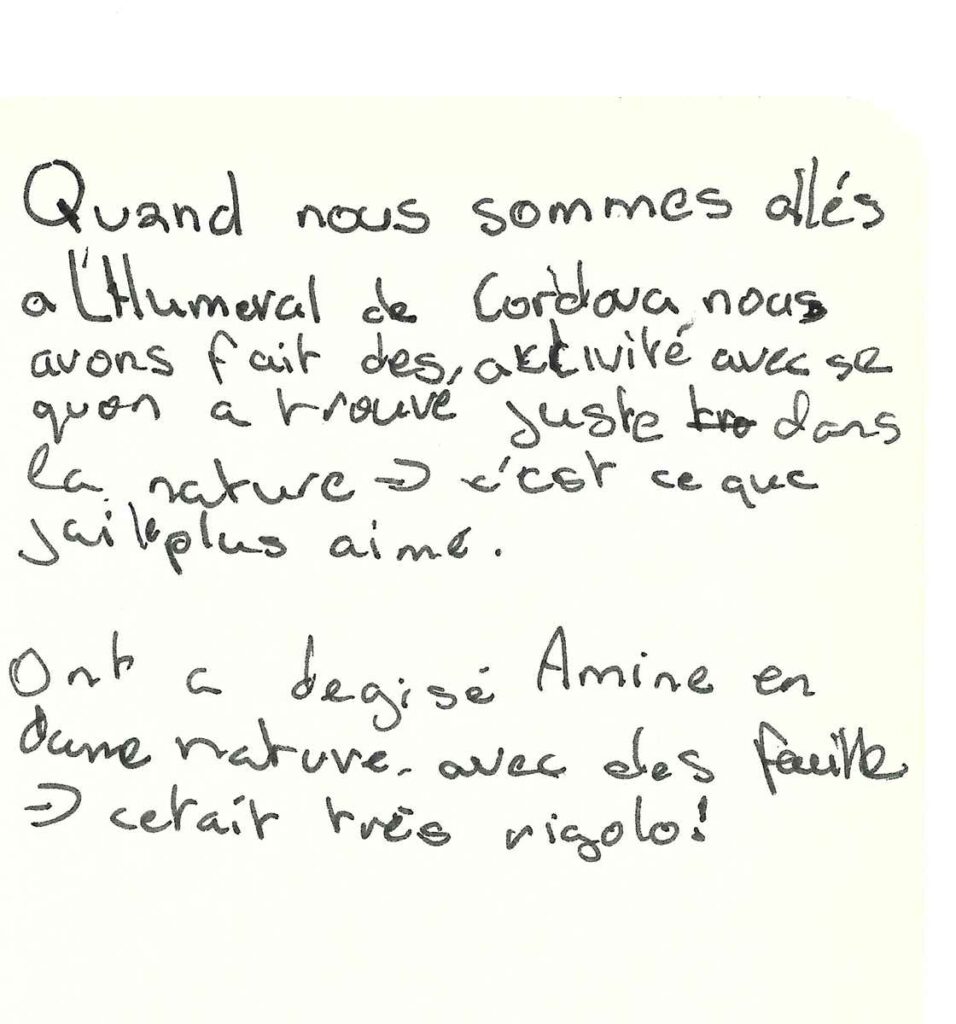 Quand nous sommes allés
a l'Humeval de Cordova nous
avons fait des activité avec se
quon a trouvé juste tro dans
la nature => c'est ce que
jai le plus aimé.
Ont a degisé Amine en
dame nature avec des feuille
=> cetait très rigolo!